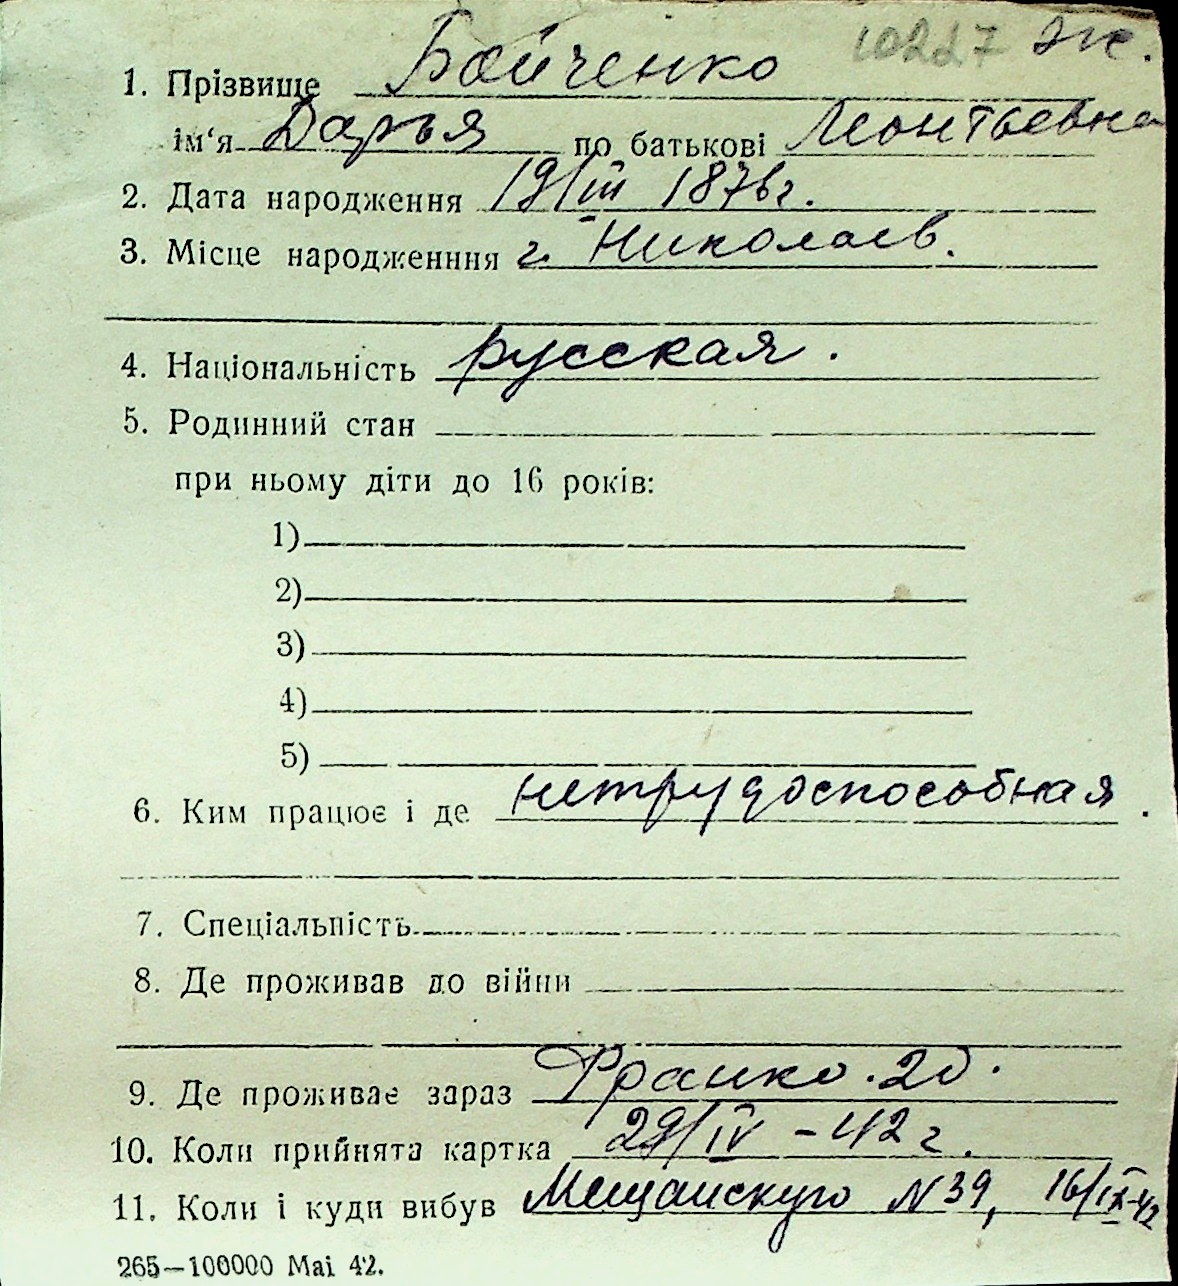 10227 Ж.
1. Прізвище Бойченко
ім'я Дарья по батькові Леонтьевна
2. Дата народження 19/III 1876 г.
3. Місце народженння г. Николаев.
4. Національність русская.
5. Родинний стан
при ньому діти до 16 років:
1)
2)
3)
4)
5)
6. Ким працює і де нетрудоспособная.
7. Спеціальність
8. Де проживав до війни
9. Де проживає зараз Франко. 20.
10. Коли прийнята картка 29/IV - 42 г.
11. Коли і куди вибув Мещанскую N 39, 16/IX-42
265—100000 Mai 42.